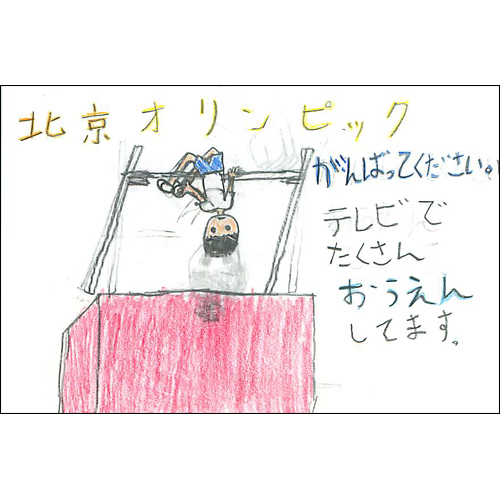 北京オリンピック
がんばってください。
テレビで
たくさん
おうえん
してます。